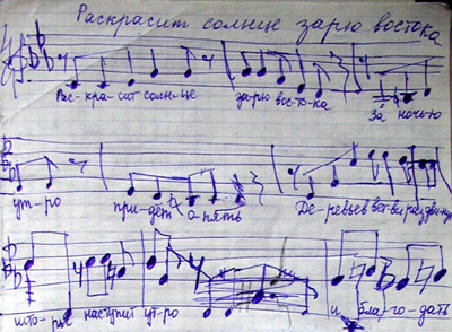 Раскрасит солнце зарю востока
Рас-кра-сит солн-це зарю вос-то-ка За ночью
ут-ро при-дёт о-пять Де-ревьев вет-ви раздвинув
што-ры наступит ут-ро и бла-го-дать